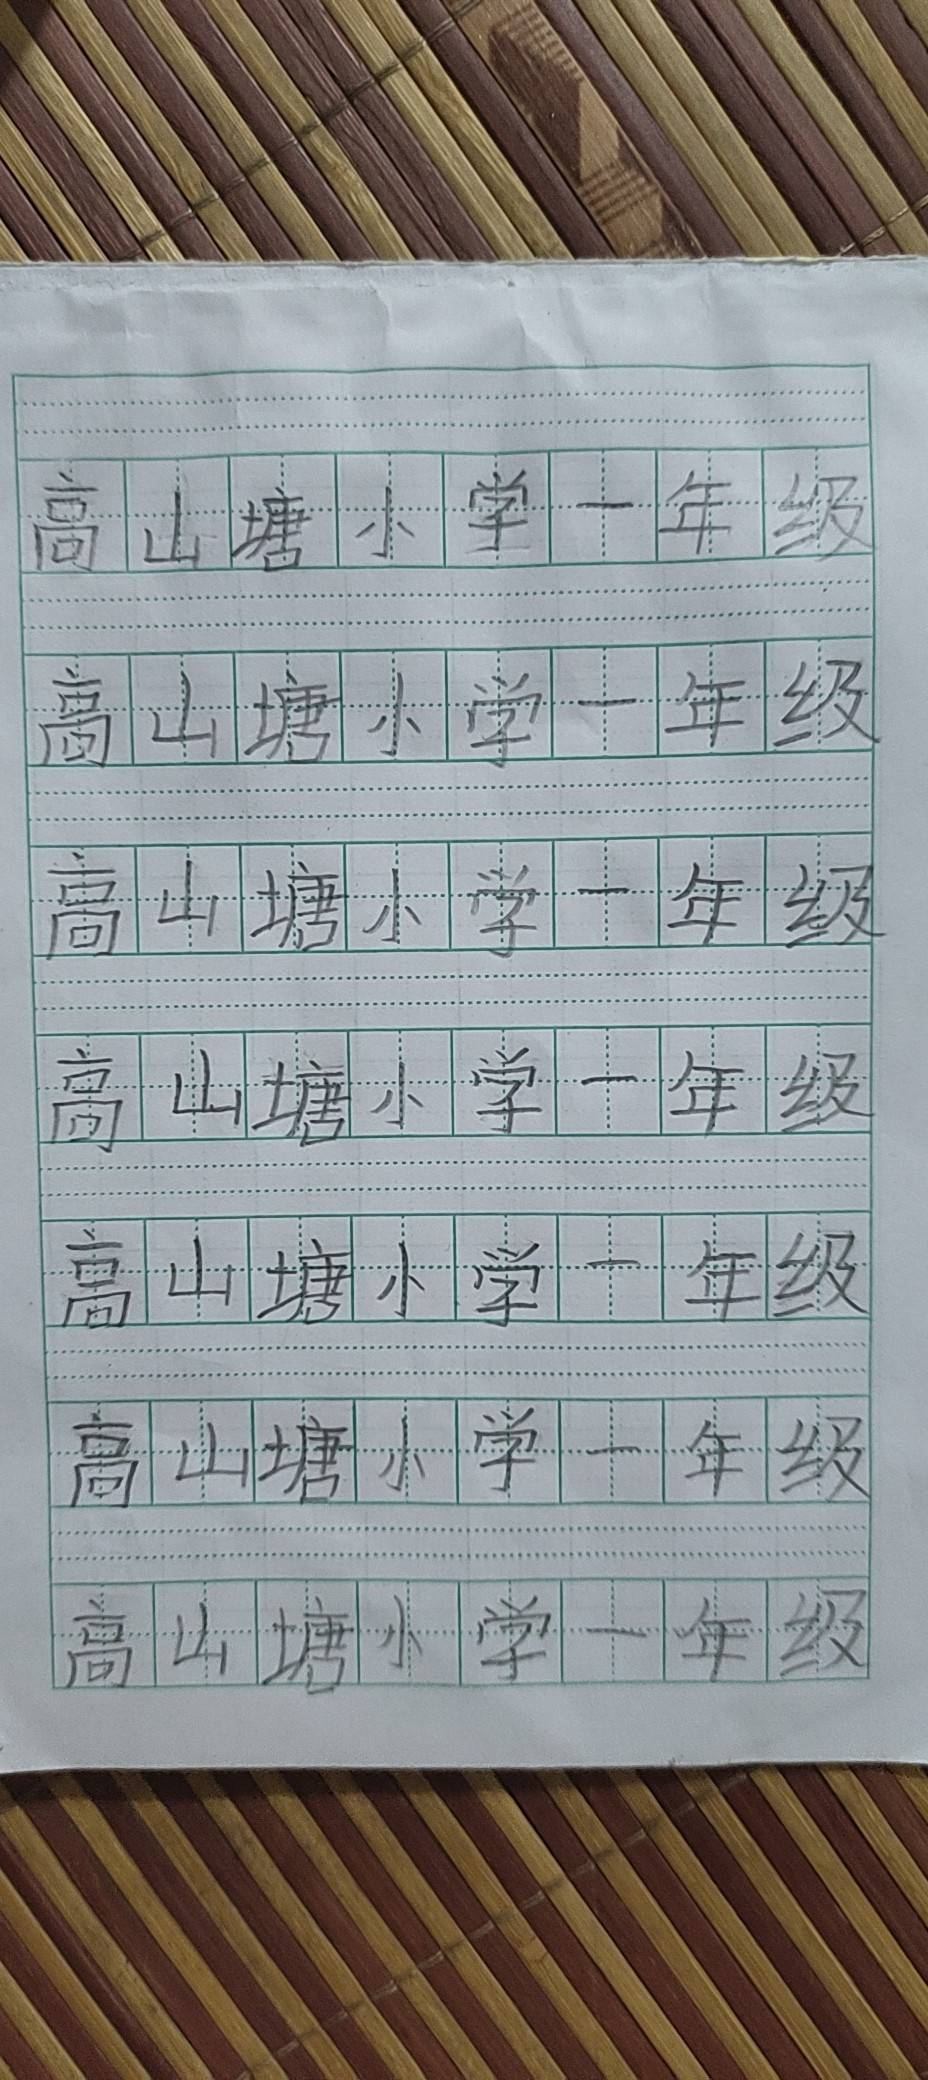 高山塘小学一年级
高山塘小学一年级
高山塘小学一年级
高山塘小学一年级
高山塘小学一年级
高山塘小学一年级
高山塘小学一年级